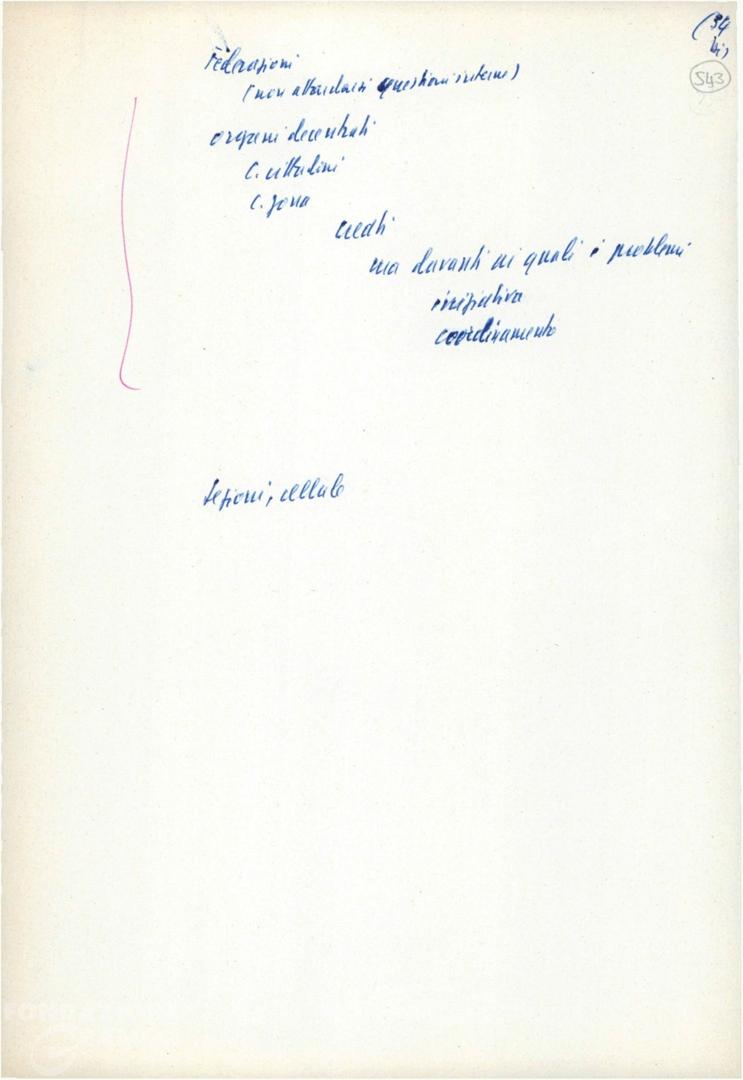 (34
bis)
543
Federazioni
(non attardarsi questioni interne)
organi decentrati
C. cittadini
C. zona
creati
ma davanti ai quali i problemi
iniziativa
coordinamento
Sezioni, cellule